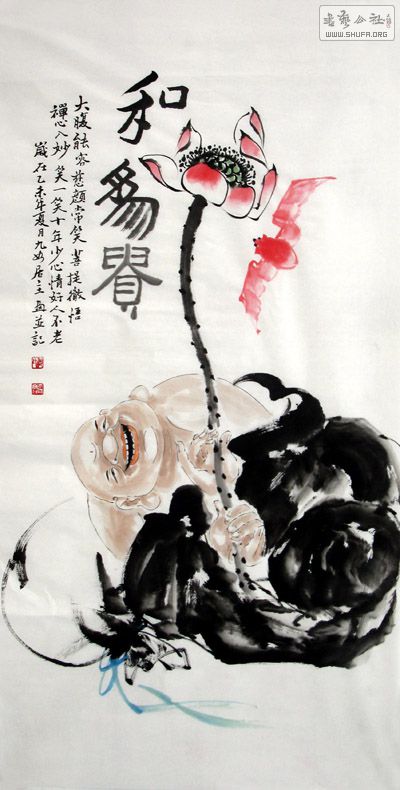 和為貴
大腹能容慈顏常笑菩提徹悟
禪心入妙笑一笑十年少心情好人不老
歲在乙未年夏月九如居主畫並記
書藝公社
WWW.SHUFA.ORG